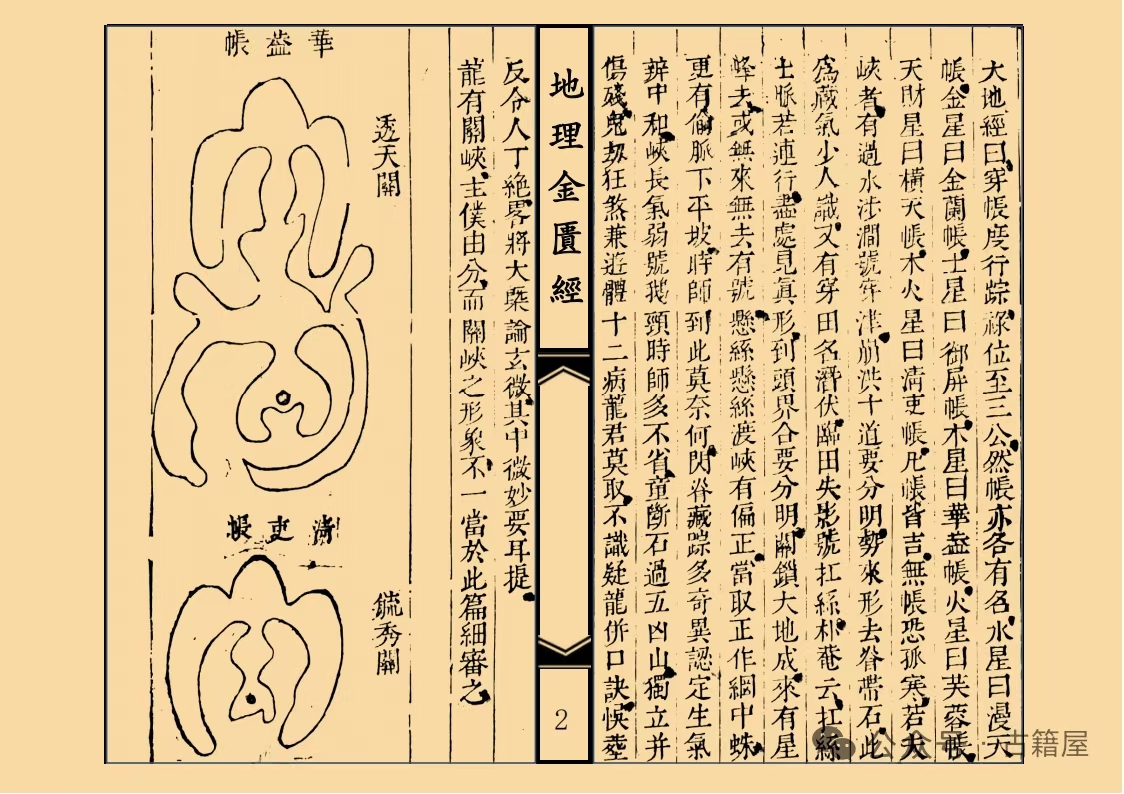 大地經曰穿帳度行踪祿位至三公然帳亦各有名水星曰漫天
帳金星曰金蘭帳土星曰御屏帳木星曰華葢帳火星曰芙蓉帳
天財星曰橫天帳木火星曰清吏帳凡帳皆吉無帳恐孤寒若夫
峽者有過水涉澗號穿津崩洪十道要分明勢來形去脊帶石此
為藏氣少人識又有穿田名潛伏臨田失影號扛絲朴菴云扛絲
土脈若連行盡處見真形到頭界合要分明關鎖大地成來有星
峰去或無來無去有號懸絲懸絲渡峽有偏正當取正作網中蛛
更有偷脈下平坡時師到此莫奈何閃脊藏踪多奇異認定生氣
辨中和峽長氣弱號鵝頸時師多不省童斷石過五凶山獨立并
傷殘鬼刼狂煞兼遊體十二病龍君莫取不識疑龍併口訣悞塟
地理金匱經
2
反令人丁絶畧將大槩論玄微其中微妙要耳提
龍有關峽主僕由分而關峽之形象不一當於此篇細審之
透天關
華葢帳
毓秀關
清吏帳
公众号 古籍屋